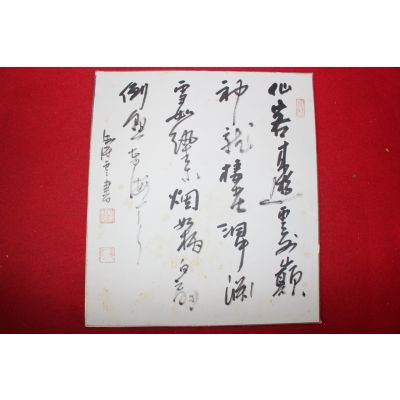 仙客来遊雲外巓
神龍棲老洞中淵
雪如紈素煙如柄白扇
倒懸東海天
書